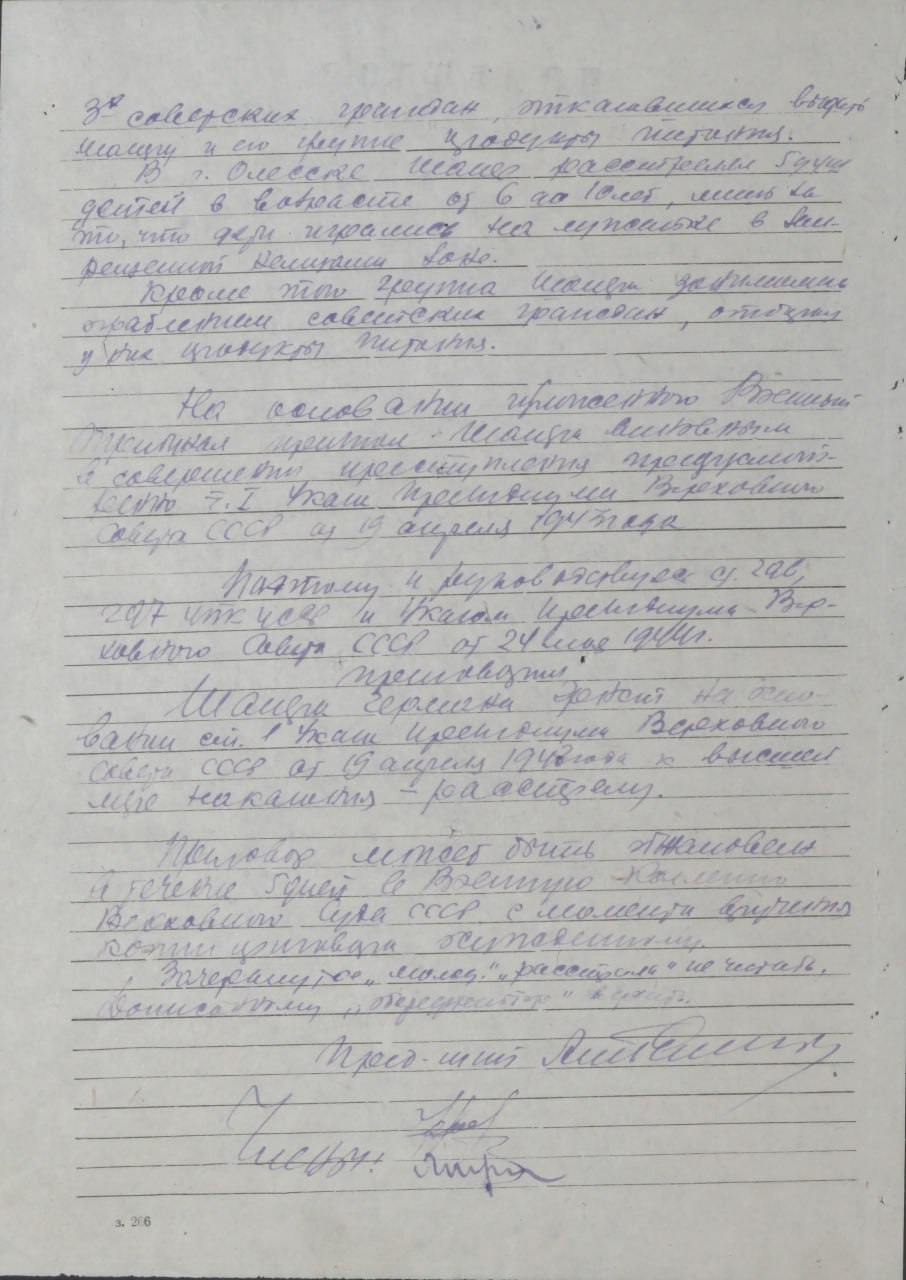 3х советских граждан, отказавшихся выдать
Шанцу и его группе продукты питания.
В г. Одесске Шанц расстрелял 5 душ
детей в возрасте от 6 до 10 лет, лишь за
то, что дети игрались на лужайке в зап-
рещенной немцами зоне.
Кроме того группа Шанца занималась
ограблением советских граждан, отбирая
у них продукты питания.
На основании изложенного Военный
Трибунал признал Шанца виновным
в совершении преступления предусмот-
ст. I Указа Президиума Верховного
Совета СССР от 19 апреля 1943 года
Поэтому и руководствуясь ст. 296,
297 УПК УССР и Указом Президиума Вер-
ховного Совета СССР от 24 мая 1944 г.
приговорил
Шанца Германа на осно-
вании ст. 1 Указа Президиума Верховного
Совета СССР от 19 апреля 1943 года к высшей
мере наказания – расстрелу.
Приговор может быть обжалован
в течение 5 дней в Военную Коллегию
Верховного Суда СССР с момента вручения
копии приговора осужденному.
Зачеркнутое „ “ „расстрела“ не читать.
Дописанному верить.
Пред-щий
Члены:
з. 266